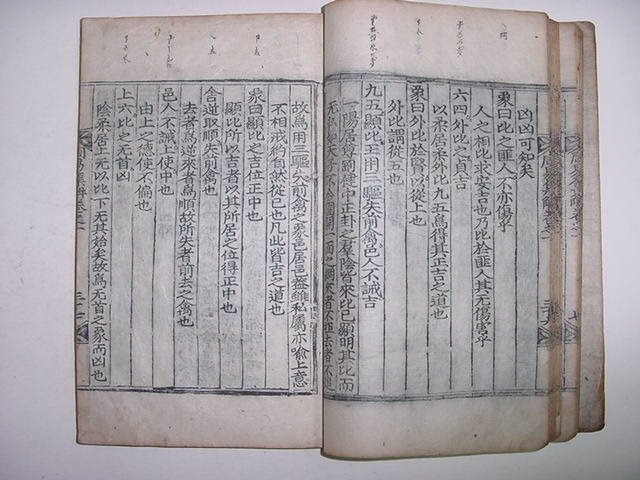 凶凶可知矣
象曰比之匪人不亦傷乎
人之相比求安吉也乃比於匪人其无傷害乎
六四外比之貞吉
以柔居柔外比九五爲得其正吉之道也
象曰外比於賢以從上也
外比謂從五也
九五顯比王用三驅失前禽邑人不誡吉
一陽居尊剛健中正卦之羣陰皆來比己顯明其比而
无私如天子不合圍開一面之網來者不拒去者不追
故爲用三驅失前禽之象邑居邑盖雖私屬亦喩上意
不相戒約自然從己也凡此皆吉之道也
象曰顯比之吉位正中也
顯比所以吉者以其所居之位得正中也
舍逆取順失前禽也
去者爲逆來者爲順故所失者前去之禽也
邑人不誡上使中也
由上之德使不偏也
上六比之无首凶
陰柔居上无以比下无其始矣故爲无首之象而凶也